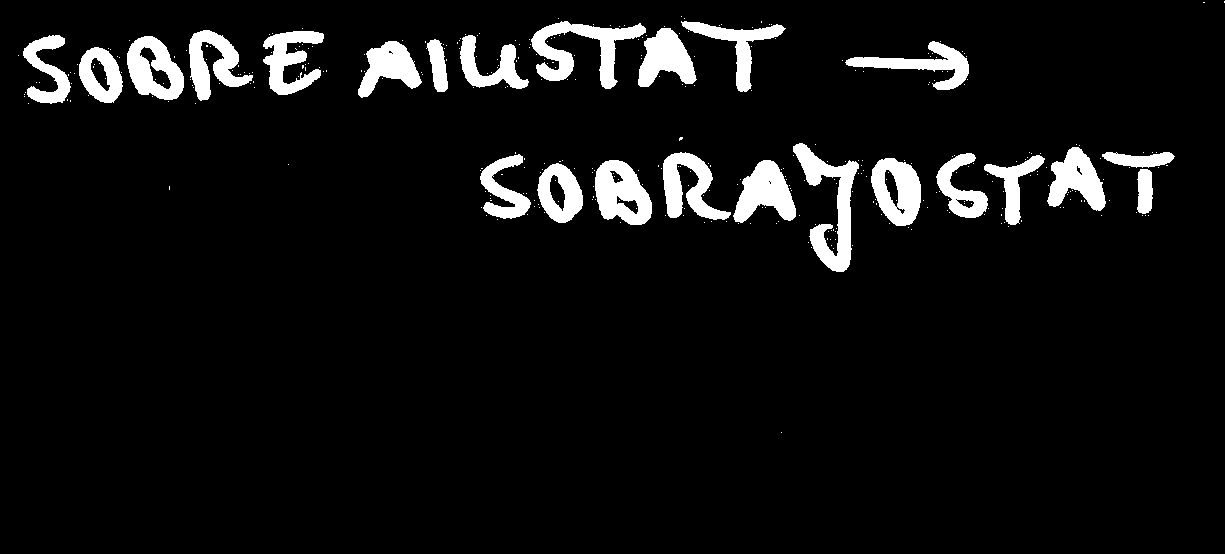 SOBRE AIUSTAT →
SOBRAJOSTAT